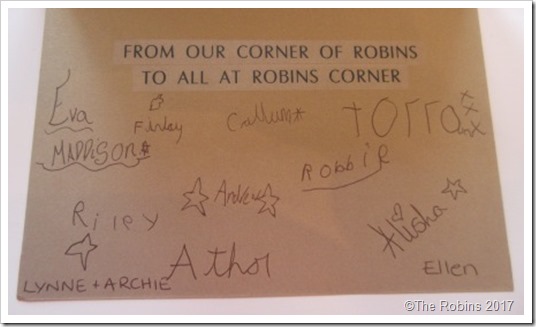 FROM OUR CORNER OF ROBINS
TO ALL AT ROBINS CORNER
Eva
Finlay
Callum
MADDiSON
RobbiE
Andrew
Riley
Alisha
Athol
Ellen
LYNNE + ARCHIE
©The Robins 2017